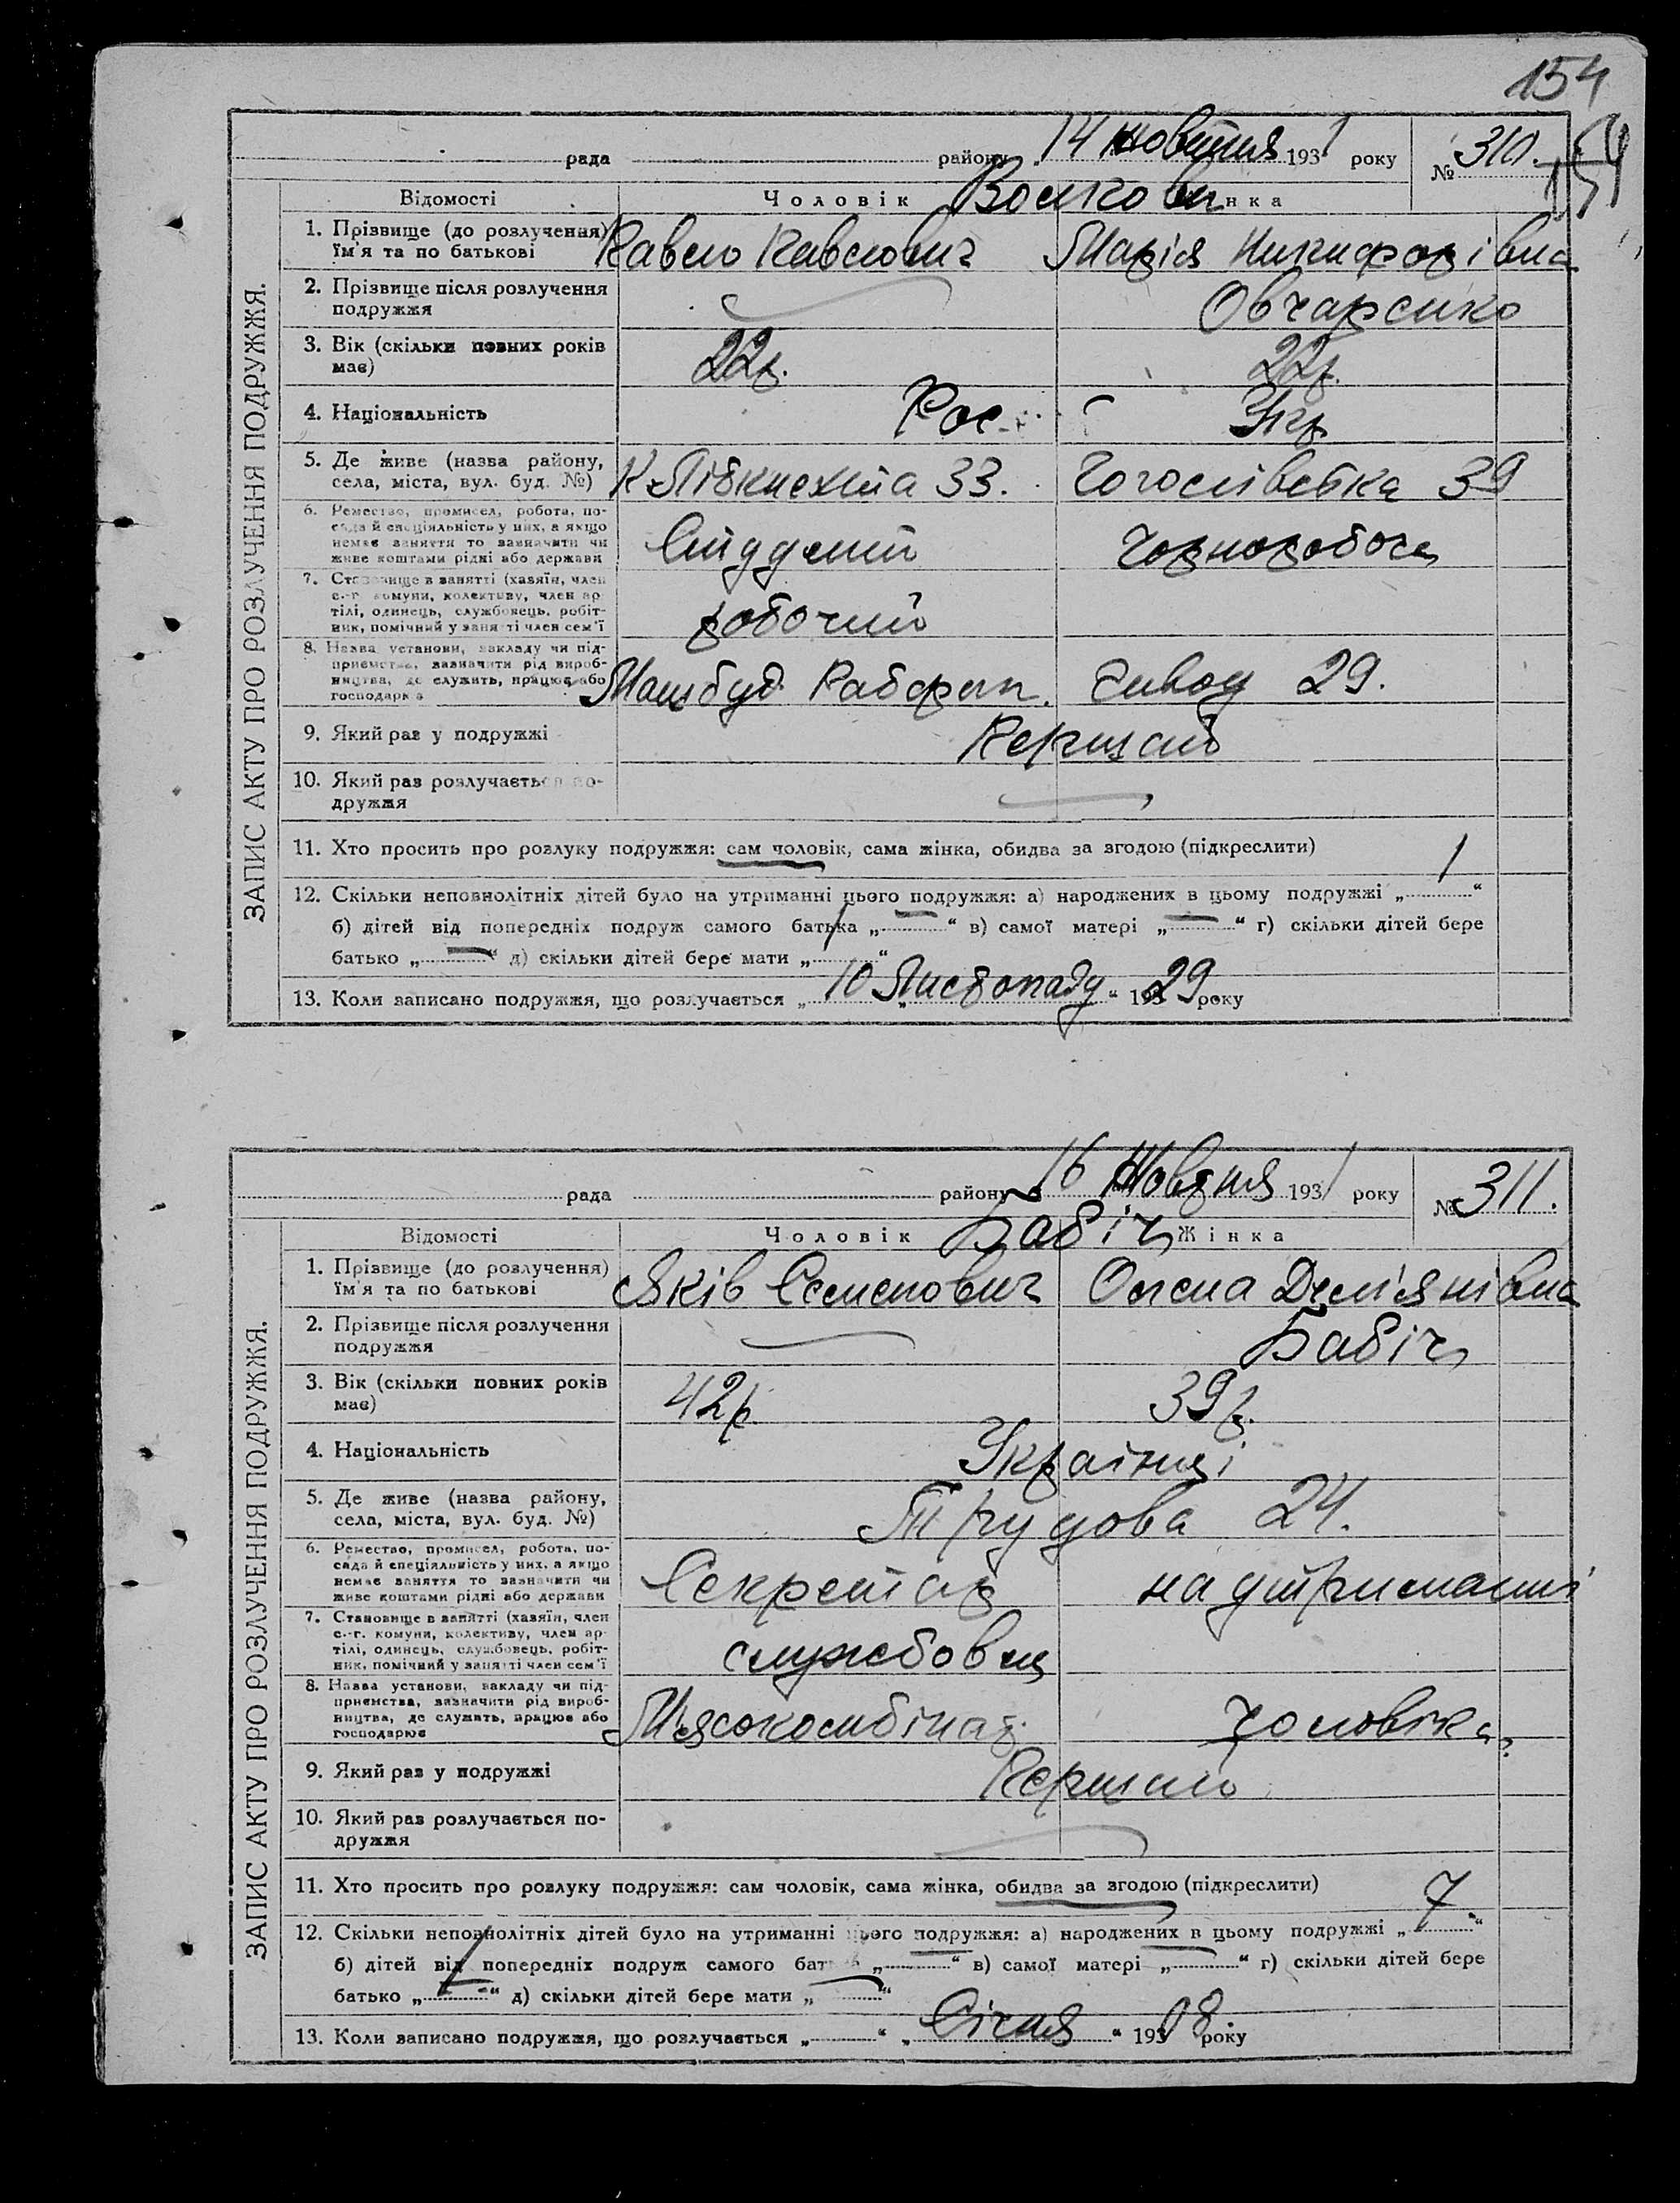 154
154
рада району 14 жовтня 1931 року № 310.
Відомості Чоловік Жінка
Волкови
1. Прізвище (до розлучення) Павло Павлович Марія Никифорівна
їм'я та по батькові
2. Прізвище після розлучення Овчаренко
подружжя
3. Вік (скільки повних років 22р. 22р.
має)
4. Національність Рос. Укр
5. Де живе (назва району, К Лібкнехта 33. Гоголівська 39
села, міста, вул. буд. №)
6. Ремество, промисел, робота, по-
сада й спеціяльність у них, а якщо
немає заняття то зазначити чи Студент Чорноробоча
живе коштами рідні або держави
7. Становище в занятті (хазяїн, член
с.-г. комуни, колективу, член ар-
тілі, одинець, службовець, робіт- робочий
ник, помічний у занятті член сем'ї
8. Назва установи, закладу чи під-
приємства, зазначити рід вироб-
ництва, де служить, працює або Машбуд. Рабфак. Завод 29.
господарює
9. Який раз у подружжі Перший
10. Який раз розлучається по-
дружжя
11. Хто просить про розлуку подружжя: сам чоловік, сама жінка, обидва за згодою (підкреслити)
12. Скільки неповнолітніх дітей було на утриманні цього подружжя: а) народжених в цьому подружжі „ 1 “
б) дітей від попередніх подруж самого батька „ — “ в) самої матері „ — “ г) скільки дітей бере
батько „ — “ д) скільки дітей бере мати „ 1 “
13. Коли записано подружжя, що розлучається „ 10 „ Листопаду “ 193 29 року
ЗАПИС АКТУ ПРО РОЗЛУЧЕННЯ ПОДРУЖЖЯ.
рада району 16 Жовтня 1931 року № 311.
Відомості Чоловік Жінка
Бабіч
1. Прізвище (до розлучення) Яків Семенович Олена Дем'янівна
їм'я та по батькові
2. Прізвище після розлучення Бабіч
подружжя
3. Вік (скільки повних років 42р 39р.
має)
4. Національність Українці
5. Де живе (назва району, Трудова 24.
села, міста, вул. буд. №)
6. Ремество, промисел, робота, по-
сада й спеціяльність у них, а якщо
немає заняття то зазначити чи Секретар на утриманні
живе коштами рідні або держави
7. Становище в занятті (хазяїн, член
с.-г. комуни, колективу, член ар-
тілі, одинець, службовець, робіт- службовец
ник, помічний у занятті член сем'ї
8. Назва установи, закладу чи під-
приємства, зазначити рід вироб-
ництва, де служить, працює або Мясокомбінат. чоловіка
господарює
9. Який раз у подружжі Перший
10. Який раз розлучається по-
дружжя
11. Хто просить про розлуку подружжя: сам чоловік, сама жінка, обидва за згодою (підкреслити)
12. Скільки неповнолітніх дітей було на утриманні цього подружжя: а) народжених в цьому подружжі „ 7 “
б) дітей від попередніх подруж самого батька „ — “ в) самої матері „ — “ г) скільки дітей бере
батько „ “ д) скільки дітей бере мати „ — “
13. Коли записано подружжя, що розлучається „ “ „ Січня “ 193 08. року
ЗАПИС АКТУ ПРО РОЗЛУЧЕННЯ ПОДРУЖЖЯ.